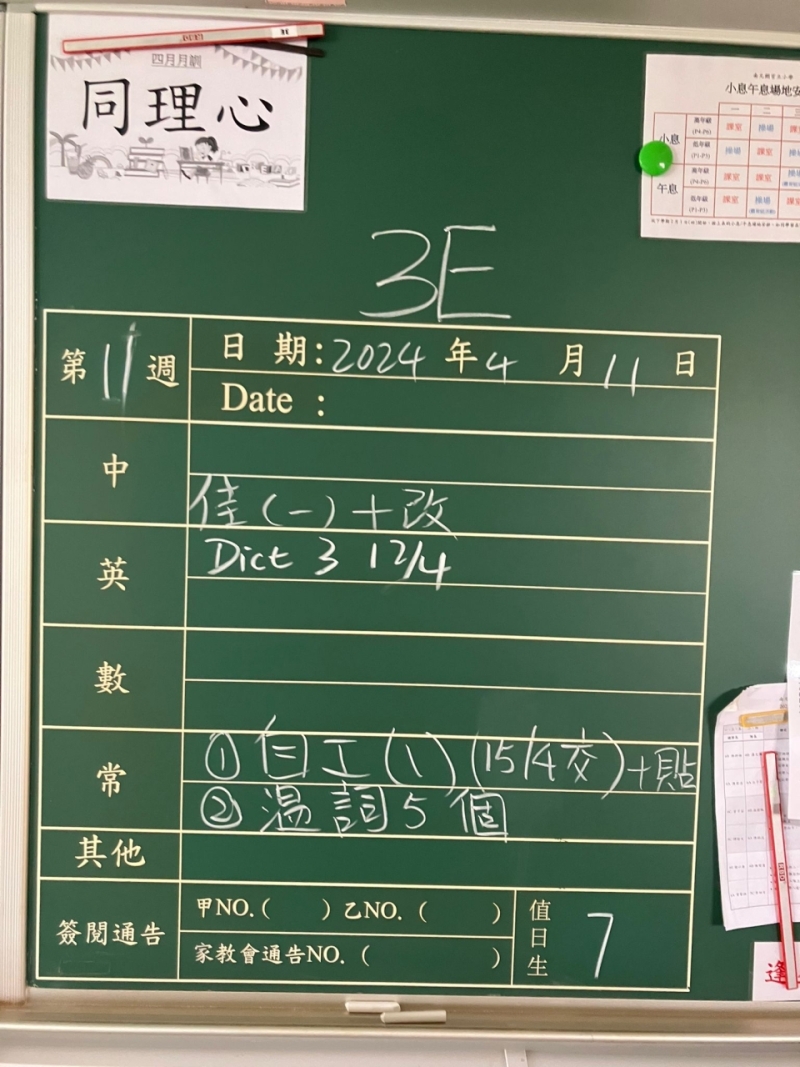 四月月訓
同理心
小息午息場地安
一 二 三
小息
高年級 (P4-P6) 課室 操場 課室
低年級 (P1-P3) 操場 課室 操場
午息
高年級 (P4-P6) 課室 課室
低年級 (P1-P3) 課室 操場 課室
3E
第 11 週
日 期：2024 年 4 月 11 日
Date ：
中
佳(一)+改
英
Dict 3 12/4
數
常
① 自工(1)(15/4交)+貼
② 溫詞5個
其他
簽閱通告
甲NO.( ) 乙NO. ( )
家教會通告NO. ( )
值日生 7